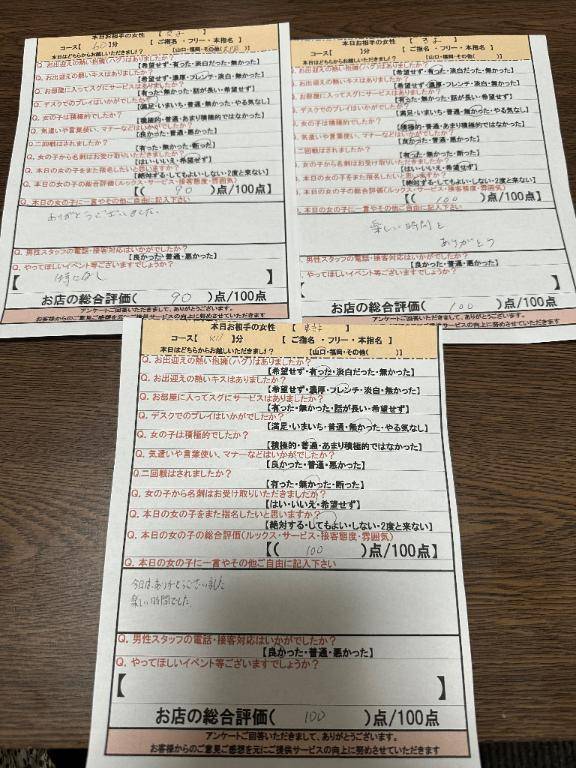 本日お相手の女性 【
コース【 60 】分 【 ご指名 ・ フリー ・ 本指名 】
本日はどちらからお越しいただきましたか？ 【山口・福岡・その他(
Q. お出迎えの熱い抱擁(ハグ)はありましたか？
【希望せず・有った・淡白だった・無かった】
Q. お出迎えの熱いキスはありましたか？
【希望せず・濃厚・フレンチ・淡白・無かった】
Q. お部屋に入ってスグにサービスはありましたか？
【有った・無かった・話が長い・希望せず】
Q. デスクでのプレイはいかがでしたか？
【満足・いまいち・普通・無かった・やる気なし】
Q. 女の子は積極的でしたか？
【積極的・普通・あまり積極的ではなかった】
Q. 気遣いや言葉使い、マナーなどはいかがでしたか？
【良かった・普通・悪かった】
Q. 二回戦はされましたか？
【有った・無かった・断った】
Q. 女の子から名刺はお受け取りいただきましたか？
【はい・いいえ・希望せず】
Q. 本日の女の子をまた指名したいと思いますか？
【絶対する・してもよい・しない・2度と来ない】
Q. 本日の女の子の総合評価(ルックス・サービス・接客態度・雰囲気)
【( 90 )点/100点】
Q. 本日の女の子に一言やその他ご自由に記入下さい
ありがとうございました
Q. 男性スタッフの電話・接客対応はいかがでしたか？
【良かった・普通・悪かった】
Q. やってほしいイベント等ございますでしょうか？
【 特になし 】
お店の総合評価( 90 )点/100点
アンケートご回答いただきまして、ありがとうございます。
お客様からのご意見ご感想を元にご提供サービスの向上に努めさせていただきます
本日お相手の女性 【
コース【 】分 【 ご指名 ・ フリー ・ 本指名 】
本日はどちらからお越しいただきましたか？ 【山口・福岡・その他( )】
お出迎えの熱い抱擁(ハグ)はありましたか？
【希望せず・有った・淡白だった・無かった】
お出迎えの熱いキスはありましたか？
【希望せず・濃厚・フレンチ・淡白・無かった】
お部屋に入ってスグにサービスはありましたか？
【有った・無かった・話が長い・希望せず】
デスクでのプレイはいかがでしたか？
【満足・いまいち・普通・無かった・やる気なし】
女の子は積極的でしたか？
【積極的・普通・あまり積極的ではなかった】
気遣いや言葉使い、マナーなどはいかがでしたか？
【良かった・普通・悪かった】
二回戦はされましたか？
【有った・無かった・断った】
女の子から名刺はお受け取りいただきましたか？
【はい・いいえ・希望せず】
本日の女の子をまた指名したいと思いますか？
【絶対する・してもよい・しない・2度と来ない】
本日の女の子の総合評価(ルックス・サービス・接客態度・雰囲気)
【( 100 )点/100点】
本日の女の子に一言やその他ご自由に記入下さい
楽しい時間を
ありがとう
男性スタッフの電話・接客対応はいかがでしたか？
【良かった・普通・悪かった】
やってほしいイベント等ございますでしょうか？
お店の総合評価( 100 )点/100点
アンケートご回答いただきまして、ありがとうございます。
お客様からのご意見ご感想を元にご提供サービスの向上に努めさせていただきます
本日お相手の女性 【 】
コース【 】分 【 ご指名 ・ フリー ・ 本指名 】
本日はどちらからお越しいただきましたか？ 【山口・福岡・その他( )】
Q. お出迎えの熱い抱擁(ハグ)はありましたか？
【希望せず・有った・淡白だった・無かった】
Q. お出迎えの熱いキスはありましたか？
【希望せず・濃厚・フレンチ・淡白・無かった】
Q. お部屋に入ってスグにサービスはありましたか？
【有った・無かった・話が長い・希望せず】
Q. デスクでのプレイはいかがでしたか？
【満足・いまいち・普通・無かった・やる気なし】
Q. 女の子は積極的でしたか？
【積極的・普通・あまり積極的ではなかった】
Q. 気遣いや言葉使い、マナーなどはいかがでしたか？
【良かった・普通・悪かった】
Q.二回戦はされましたか？
【有った・無かった・断った】
Q. 女の子から名刺はお受け取りいただきましたか？
【はい・いいえ・希望せず】
Q. 本日の女の子をまた指名したいと思いますか？
【絶対する・してもよい・しない・2度と来ない】
Q. 本日の女の子の総合評価(ルックス・サービス・接客態度・雰囲気)
【( 100 )点/100点】
Q. 本日の女の子に一言やその他ご自由に記入下さい
今日は、ありがとうございました
楽しい時間でした
Q. 男性スタッフの電話・接客対応はいかがでしたか？
【良かった・普通・悪かった】
Q. やってほしいイベント等ございますでしょうか？
【 】
お店の総合評価( 100 )点/100点
アンケートご回答いただきまして、ありがとうございます。
お客様からのご意見ご感想を元にご提供サービスの向上に努めさせていただきます